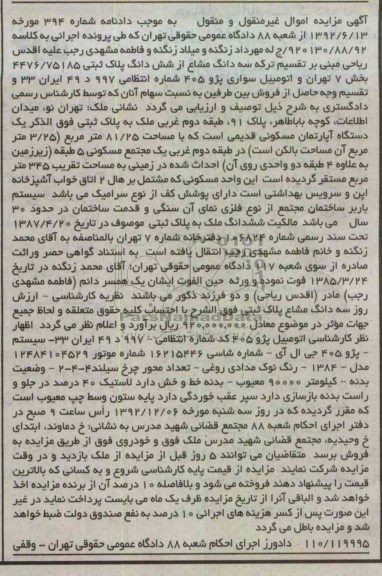 آگهی مزایده اموال غیرمنقول و منقول به موجب دادنامه شماره ۳۹۴ مورخه
۱۳۹۲/۶/۱۳ از شعبه ۸۸ دادگاه عمومی حقوقی تهران که طی پرونده اجرایی به کلاسه
۹۲۰۱۳۰/۸۸/۹۲ج له مهرداد زنگنه و میلاد زنگنه و فاطمه مشهدی رجب علیه اقدس
ریاحی مبنی بر تقسیم ترکه سه دانگ مشاع از شش دانگ پلاک ثبتی ۴۴۷۶/۷۵۱۸۵
بخش ۷ تهران و اتومبیل سواری پژو ۴۰۵ شماره انتظامی ۹۹۷ د ۴۹ ایران ۳۳ و
تقسیم وجه حاصل از فروش بین طرفین به نسبت سهام آنان که توسط کارشناس رسمی
دادگستری به شرح ذیل توصیف و ارزیابی می گردد نشانی ملک: تهران نو، میدان
اطلاعات، کوچه باباطاهر، پلاک ۹۱، طبقه دوم غربی ملک به پلاک ثبتی فوق الذکر یک
دستگاه آپارتمان مسکونی قدیمی است که با مساحت ۸۱/۲۵ متر مربع (۳/۲۵ متر
مربع آن مساحت بالکن است) در طبقه دوم غربی یک مجتمع مسکونی ۵ طبقه (زیرزمین
به علاوه ۴ طبقه دو واحدی روی آن) احداث شده در زمینی به مساحت تقریب ۳۴۵ متر
مربع مستقر گردیده است این واحد مسکونی که مشتمل بر هال ۲ اتاق خواب آشپزخانه
اپن و سرویس بهداشتی است دارای پوشش کف از نوع سرامیک می باشد سیستم
باربر ساختمان مجتمع از نوع فلزی نمای آن سنگی و قدمت ساختمان در حدود ۳۰
سال می باشد مالکیت ششدانگ ملک به پلاک ثبتی موصوف در تاریخ ۱۳۸۷/۴/۲۰
تحت سند رسمی شماره دفترخانه شماره ۷ تهران بالمناصفه به آقای محمد
زنگنه و خانم فاطمه مشهدی رجب انتقال یافته است به استناد گواهی حصر وراثت
صادره از سوی شعبه دادگاه عمومی حقوقی تهران؛ آقای محمد زنگنه در تاریخ
۱۳۸۵/۳/۲۴ فوت نموده و ورثه حین الفوت ایشان یک همسر دائم (فاطمه مشهدی
رجب) مادر (اقدس ریاحی) و دو فرزند ذکور می باشند نظریه کارشناسی - ارزش
روز سه دانگ مشاع پلاک ثبتی فوق الشرح با احتساب کلیه حقوق متعلقه و لحاظ جمیع
جهات مؤثر در موضوع معادل ۹۲۰,۰۰۰,۰۰۰ ریال برآورد و اعلام نظر می گردد اظهار
نظر کارشناسی اتومبیل پژو ۴۰۵ کد شماره انتظامی - ۹۹۷ د ۴۹ ایران ۳۳- سیستم
- پژو ۴۰۵ جی ال آی - شماره شاسی ۱۶۲۱۵۴۴۶ شماره موتور ۱۲۴۸۴۱۰۴۵۲۹
مدل - ۱۳۸۴ - رنگ نوک مدادی روغی - تعداد محور چرخ سیلند۴-۴-۲ - وضعیت
بدنه - کیلومتر ۹۰۰۰۰ معیوب - بدنه خط و خش دارد لاستیک ۴۰ درصد در جلو و
راست بدنه بازسازی دارد سپر عقب خوردگی دارد پایه ستون وسط چپ معیوب است
که مقرر گردیده که در روز سه شنبه مورخه ۱۳۹۲/۱۲/۰۶ رأس ساعت ۹ صبح در
دفتر اجرای احکام شعبه ۸۸ مجتمع قضائی شهید مدرس به نشانی: خ دماوند، ابتدای
خ وحیدیه، مجتمع قضائی شهید مدرس ملک فوق و خودروی فوق از طریق مزایده به
فروش برسد متقاضیان می توانند ۵ روز قبل از مزایده از ملک بازدید و در وقت
مزایده شرکت نمایند مزایده از قیمت پایه کارشناسی شروع و به کسانی که بالاترین
قیمت را پیشنهاد دهند فروخته می شود و بلافاصله ۱۰ درصد آن از برنده مزایده اخذ
خواهد شد و الباقی آنرا از تاریخ مزایده ظرف یک ماه می بایست پرداخت نماید در غیر
این صورت پس از کسر هزینه های اجرائی ۱۰ درصد به نفع صندوق دولت ضبط خواهد
شد و مزایده باطل می گردد
۱۱۰/۱۱۹۹۹۵ دادورز اجرای احکام شعبه ۸۸ دادگاه عمومی حقوقی تهران - وقفی